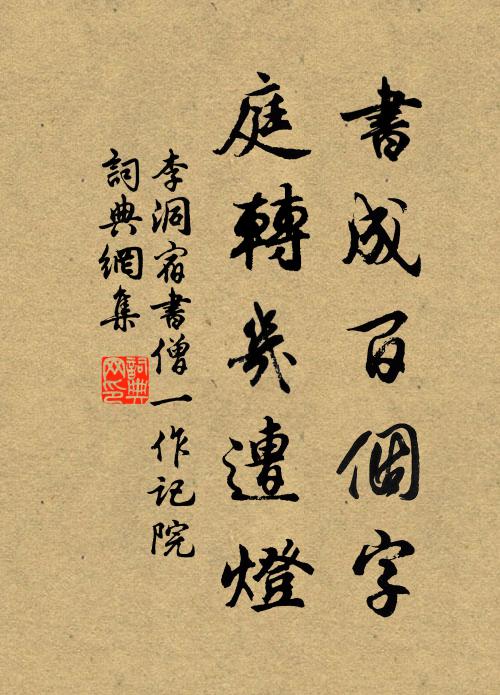 書成百個字
庭轉幾遭燈
李洞宿書僧一作記院
詞典網集
詞典網印